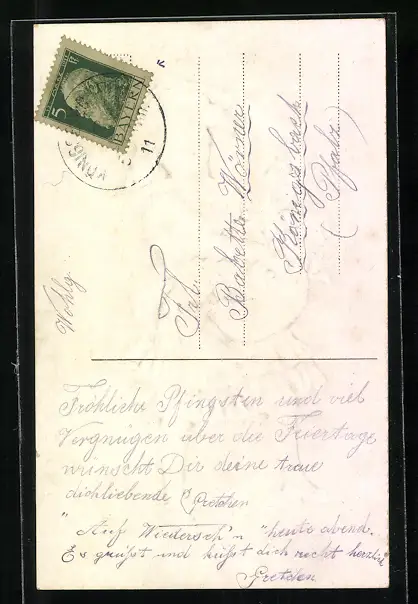 5
BAYERN
11
Wohlg.
Frl.
Babette Wörner
Königsbach
(Pfalz)
Fröhliche Pfingsten und viel
Vergnügen über die Feiertage
wünscht Dir deine treue
dichliebende Gretchen
"Auf Wiederseh'n "heute abend.
Es grüßt und küßt dich recht herzlich"
Gretchen